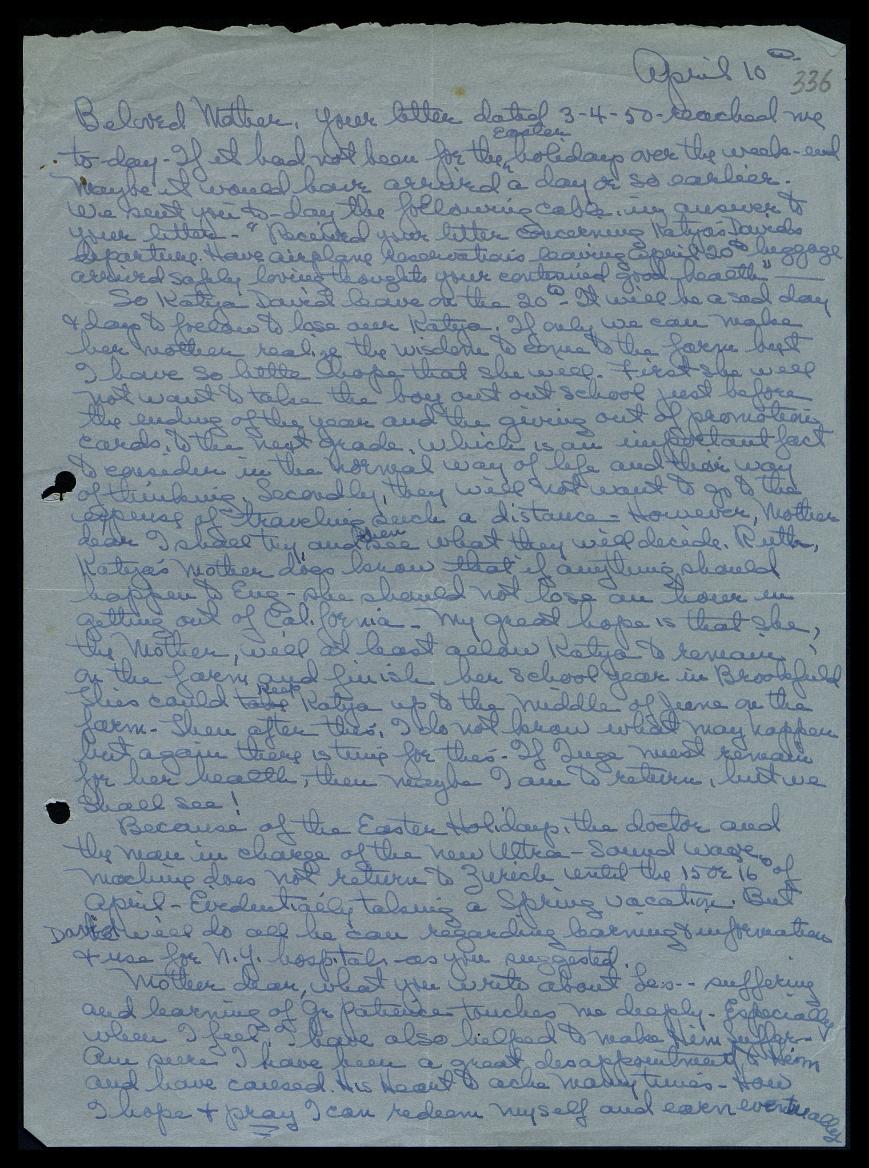 April 10th
336
Beloved Mother, Your letter dated 3-4-50- reached me
to-day - If it had not been for the Easter holidays over the week-end
maybe it would have arrived a day or so earlier.
We sent you to-day the following cable in answer to
your letter - " Received your letter concerning Katya's Davids
departure. Have airplane reservations leaving April 20th luggage
arrived safely loving thoughts your continued good health" —
So Katya David leave on the 20th - It will be a sad day
& days to follow to lose our Katya. If only we can make
her mother realize the wisdom to come to the farm but
I have so little hope that she will. First she will
not want to take the boy out out school just before
the ending of the year and the giving out of promotion
cards to the next grade, which is an important fact
to consider in the normal way of life and their way
of thinking. Secondly, they will not want to go to the
expense of traveling such a distance - However, Mother
dear I shall try, and then see what they will decide. Ruth,
Katya's Mother does know that if anything should
happen to Eng - she should not lose an hour in
getting out of California - My great hope is that she,
the Mother, will at least allow Katya to remain
on the farm and finish her school year in Brookfield
Slies could take keep Katya up to the middle of June on the
farm - Then after this, I do not know what may happen
but again there is time for this - If Inge must remain
for her health, then maybe I am to return, but we
shall see!
Because of the Easter Holidays, the doctor and
the man in charge of the new Ultra-Sound wave
machine does not return to Zurich until the 15 or 16th of
April - Evidentially taking a Spring vacation. But
David will do all he can regarding learning & information
& use for N.Y. hospitals - as you suggested.
Mother dear, what you write about -- suffering
and learning of Gr patience touches me deeply - Especially
when I feel, I have also helped to make Him suffer -
Am sure I have been a great disappointment to Him
and have caused His Heart to ache many times - How
I hope & pray I can redeem myself and earn eventually